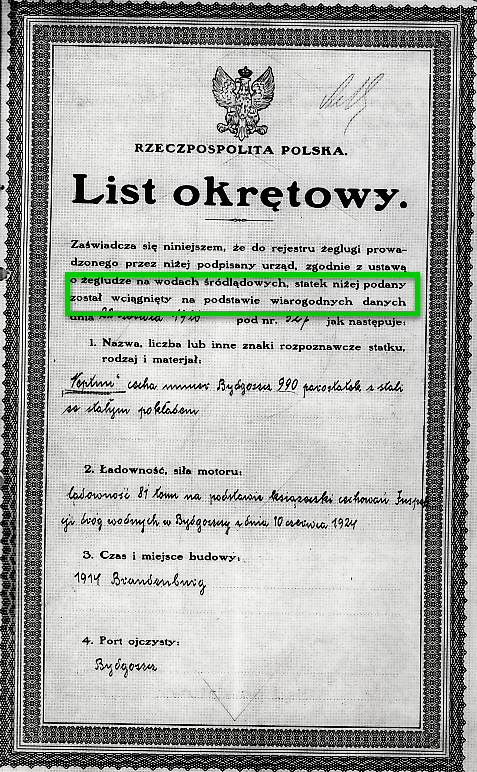 RZECZPOSPOLITA POLSKA.
List okrętowy.
Zaświadcza się niniejszem, że do rejestru żeglugi prowa-
dzonego przez niżej podpisany urząd, zgodnie z ustawą
o żegludze na wodach śródlądowych, statek niżej podany
został wciągnięty na podstawie wiarogodnych danych
dnia pod nr. jak następuje:
1. Nazwa, liczba lub inne znaki rozpoznawcze statku,
rodzaj i materjał:
"Neptun" cecha numer Bydgoszcz 990 parostatek z stali
ze stałym pokładem
2. Ładowność, siła motoru:
ładowność 81 tonn na podstawie książeczki cechowań Inspek
cji dróg wodnych w Bydgoszczy z dnia 10 czerwca 1924
3. Czas i miejsce budowy:
1914 Brandenburg
4. Port ojczysty:
Bydgoszcz